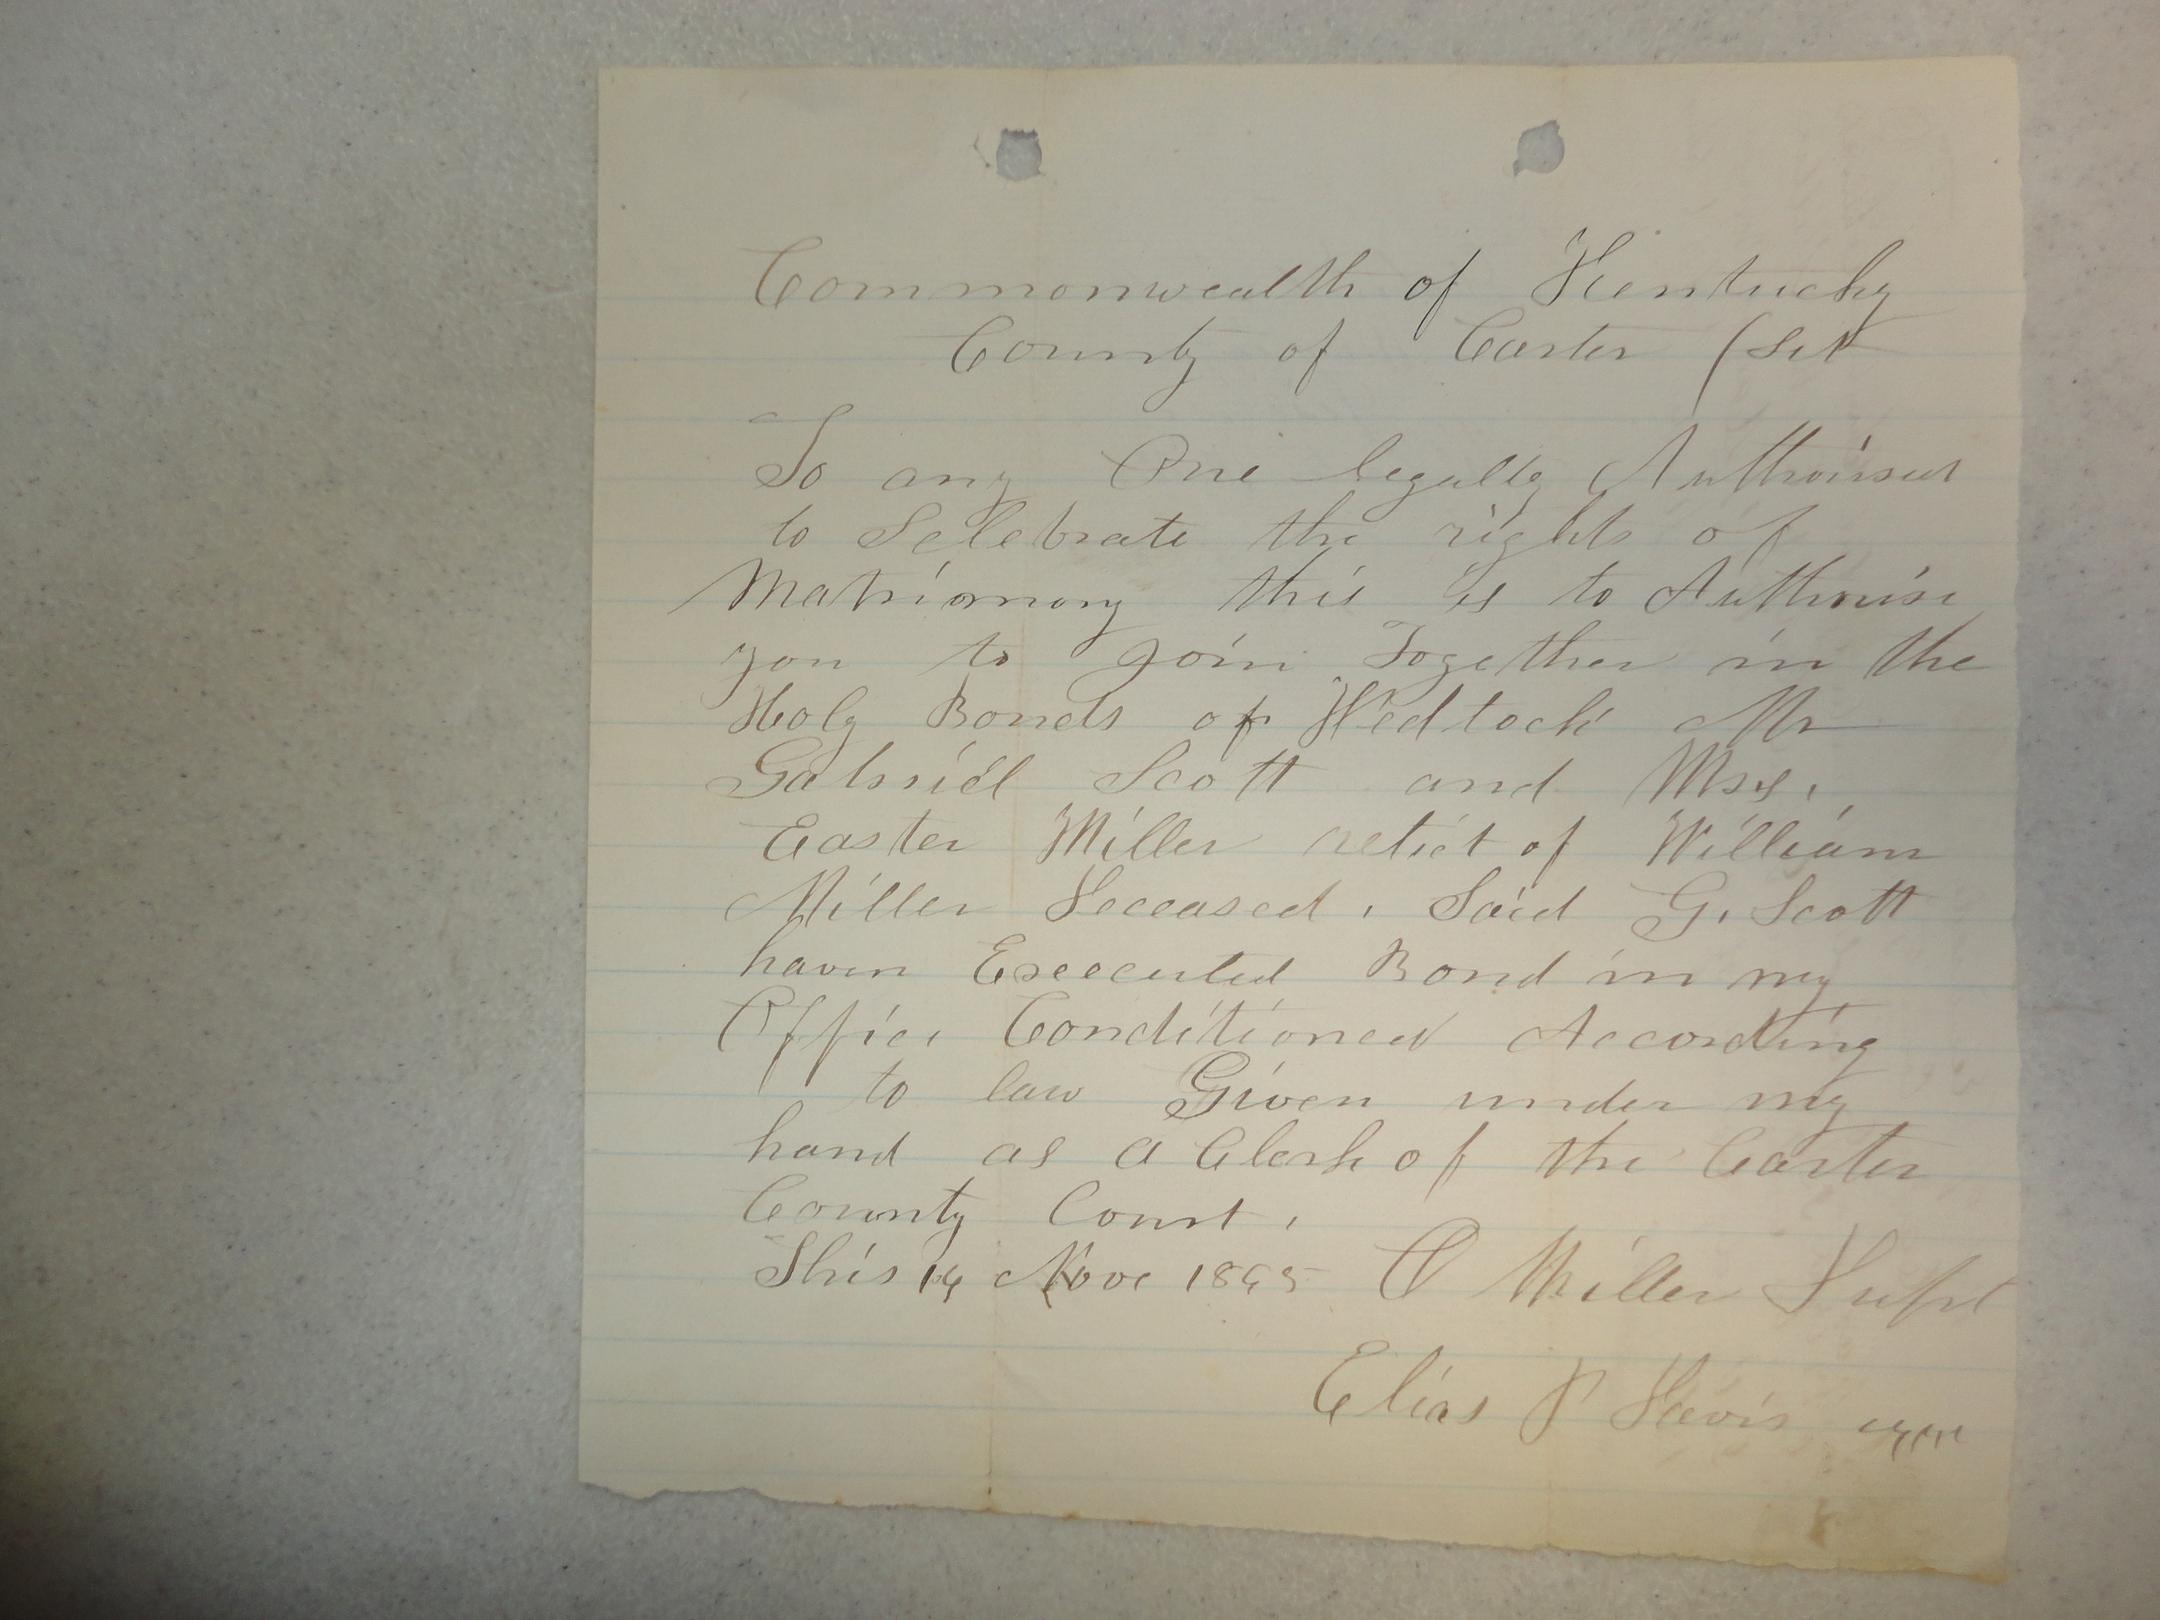 Commonwealth of Kentucky
County of Carter (Sct
To any One legally Authorised
to Selebrate the rights of
Matrimony this is to Authorise
you to join Together in the
Holy Bonds of Wedlock Mr
Gabriel Scott and Mrs.
Easter Miller relict of William
Miller Deceased. Said G. Scott
haven Executed Bond in my
Office Conditioned According
to law Given under my
hand as a Clerk of the Carter
County Court.
This 14 Nove O Miller
Elias P Davis